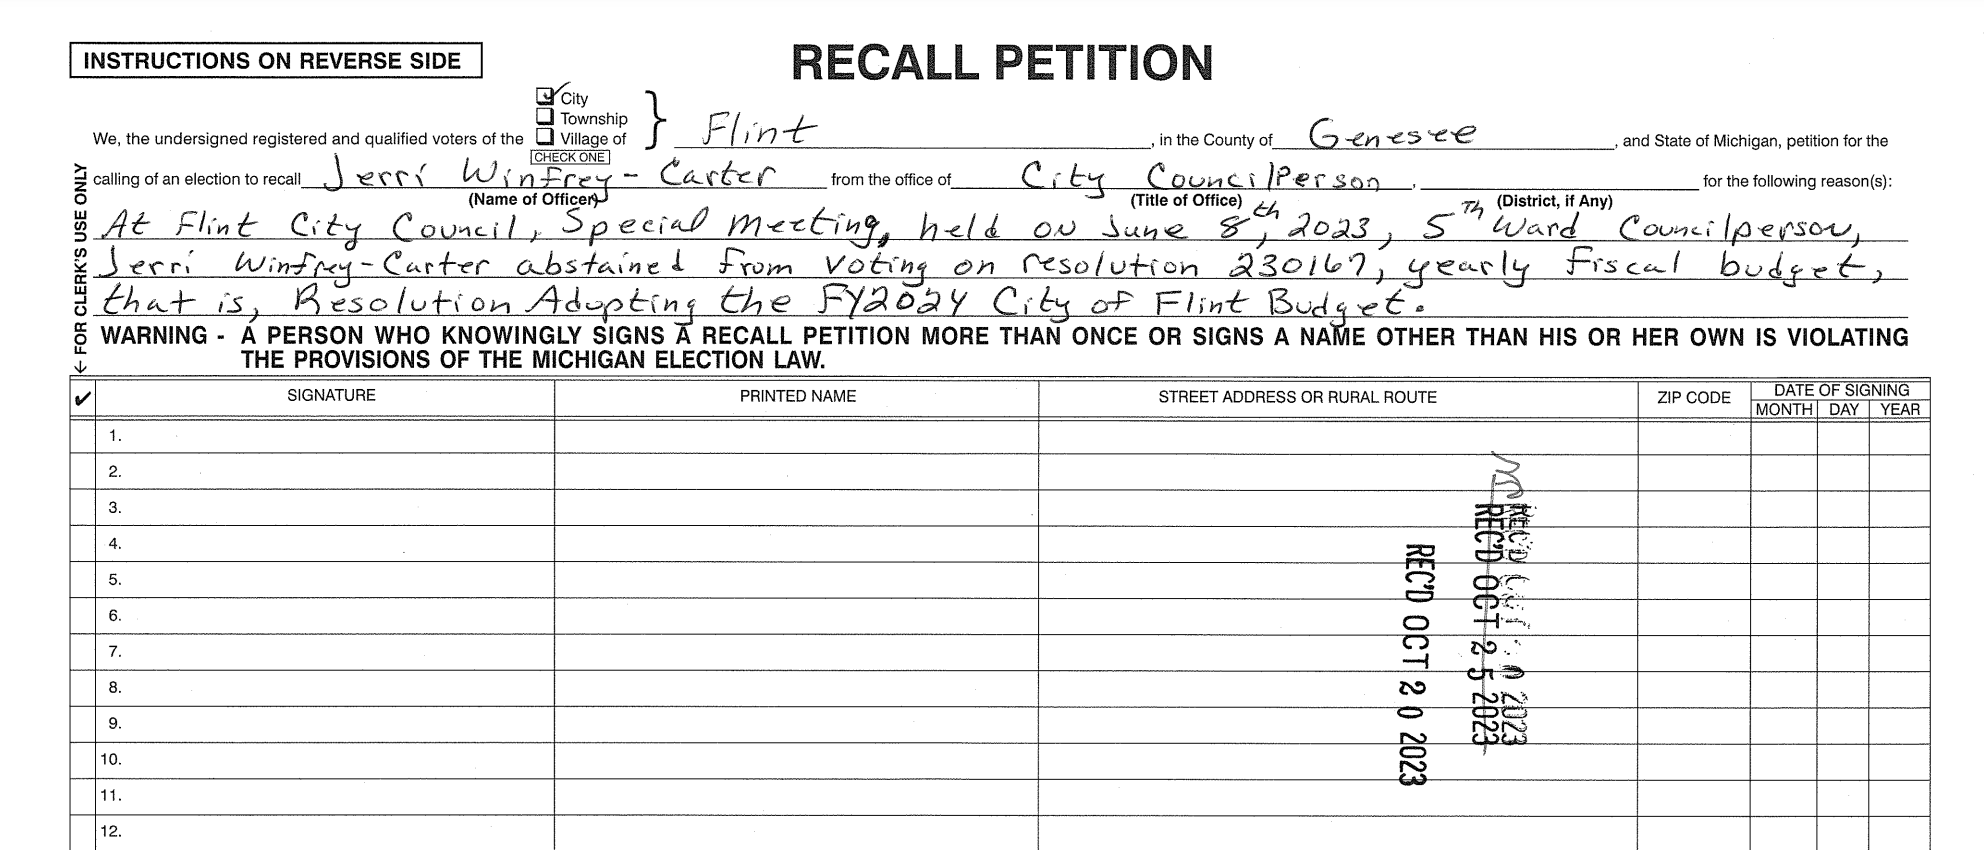 INSTRUCTIONS ON REVERSE SIDE
RECALL PETITION
City
Township
We, the undersigned registered and qualified voters of the Village of Flint, in the County of Genesee, and State of Michigan, petition for the
CHECK ONE
calling of an election to recall Jerri Winfrey-Carter from the office of City CouncilPerson, for the following reason(s):
(Name of Officer) (Title of Office) (District, if Any)
At Flint City Council, Special Meeting, held on June 8th, 2023, 5Th Ward Councilperson,
Jerri Winfrey-Carter abstained from voting on resolution 230167, yearly fiscal budget,
that is, Resolution Adopting the FY2024 City of Flint Budget.
← FOR CLERK'S USE ONLY
WARNING - A PERSON WHO KNOWINGLY SIGNS A RECALL PETITION MORE THAN ONCE OR SIGNS A NAME OTHER THAN HIS OR HER OWN IS VIOLATING
THE PROVISIONS OF THE MICHIGAN ELECTION LAW.
✔ SIGNATURE PRINTED NAME STREET ADDRESS OR RURAL ROUTE ZIP CODE DATE OF SIGNING
MONTH DAY YEAR
1.
2.
3.
4.
5.
6.
7.
8.
9.
10.
11.
12.
REC'D OCT 25 2023
REC'D OCT 20 2023